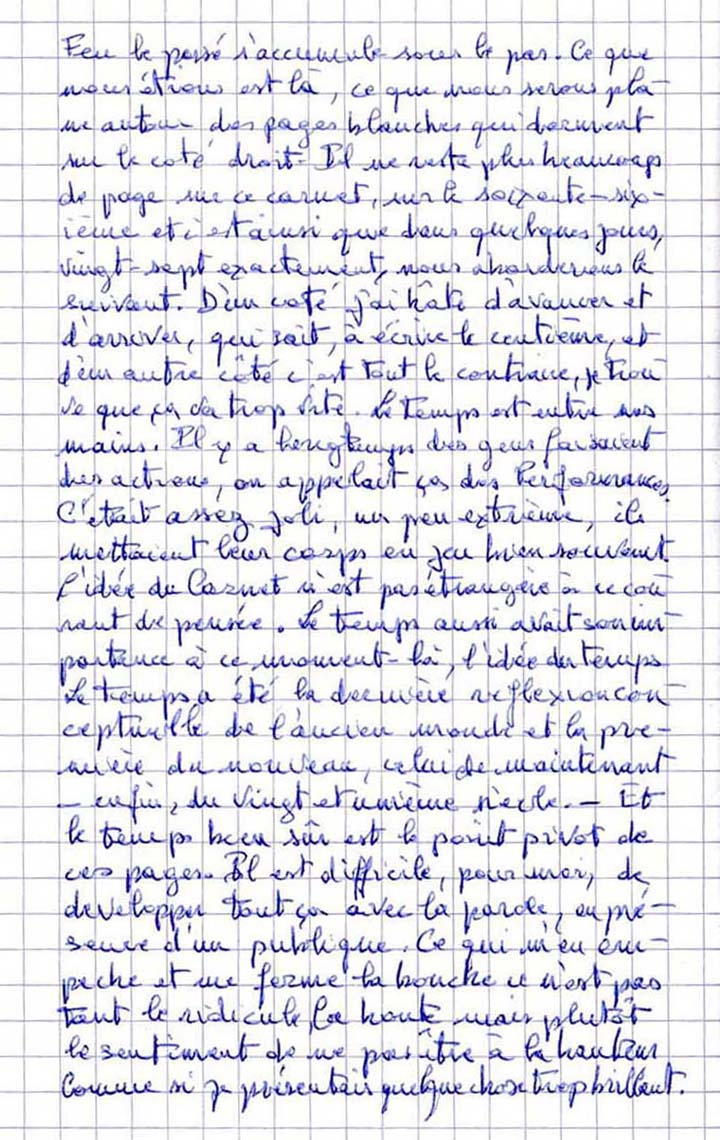 Feu le passé s'accumule sous le pas. Ce que
nous étions est là, ce que nous serons pla-
ne autour des pages blanches qui dorment
sur le coté droit. Il ne reste plus beaucoup
de page sur ce carnet, sur le soixante-six-
ième et c'est ainsi que dans quelques jours,
vingt-sept exactement, nous aborderons le
suivant. D'un coté j'ai hâte d'avancer et
d'arriver, qui sait, à écrire le centième, et
d'un autre côté c'est tout le contraire, je trou
ve que ça va trop vite. Le temps est entre nos
mains. Il y a longtemps des gens faisaient
des actions, on appelait ça des Performances.
C'était assez joli, un peu extrème, ils
mettaient leur corps en jeu bien souvent.
L'idée du Carnet n'est pas étrangère à ce cou
rant de pensée. Le temps aussi avait son im-
portance à ce moment-là, l'idée du temps.
Le temps a été la dernière réflexion con-
ceptuelle de l'ancien monde et la pre-
mière du nouveau, celui de maintenant
- enfin, du vingt et unième siècle. - Et
le temps bien sûr est le point pivot de
ces pages. Il est difficile, pour moi, de
développer tout ça avec la parole, en pré-
sence d'un publique. Ce qui m'en em-
peche et me ferme la bouche ce n'est pas
tant le ridicule, la honte mais plutôt
le sentiment de ne pas être à la hauteur
Comme si je présentais quelque chose trop brillant.